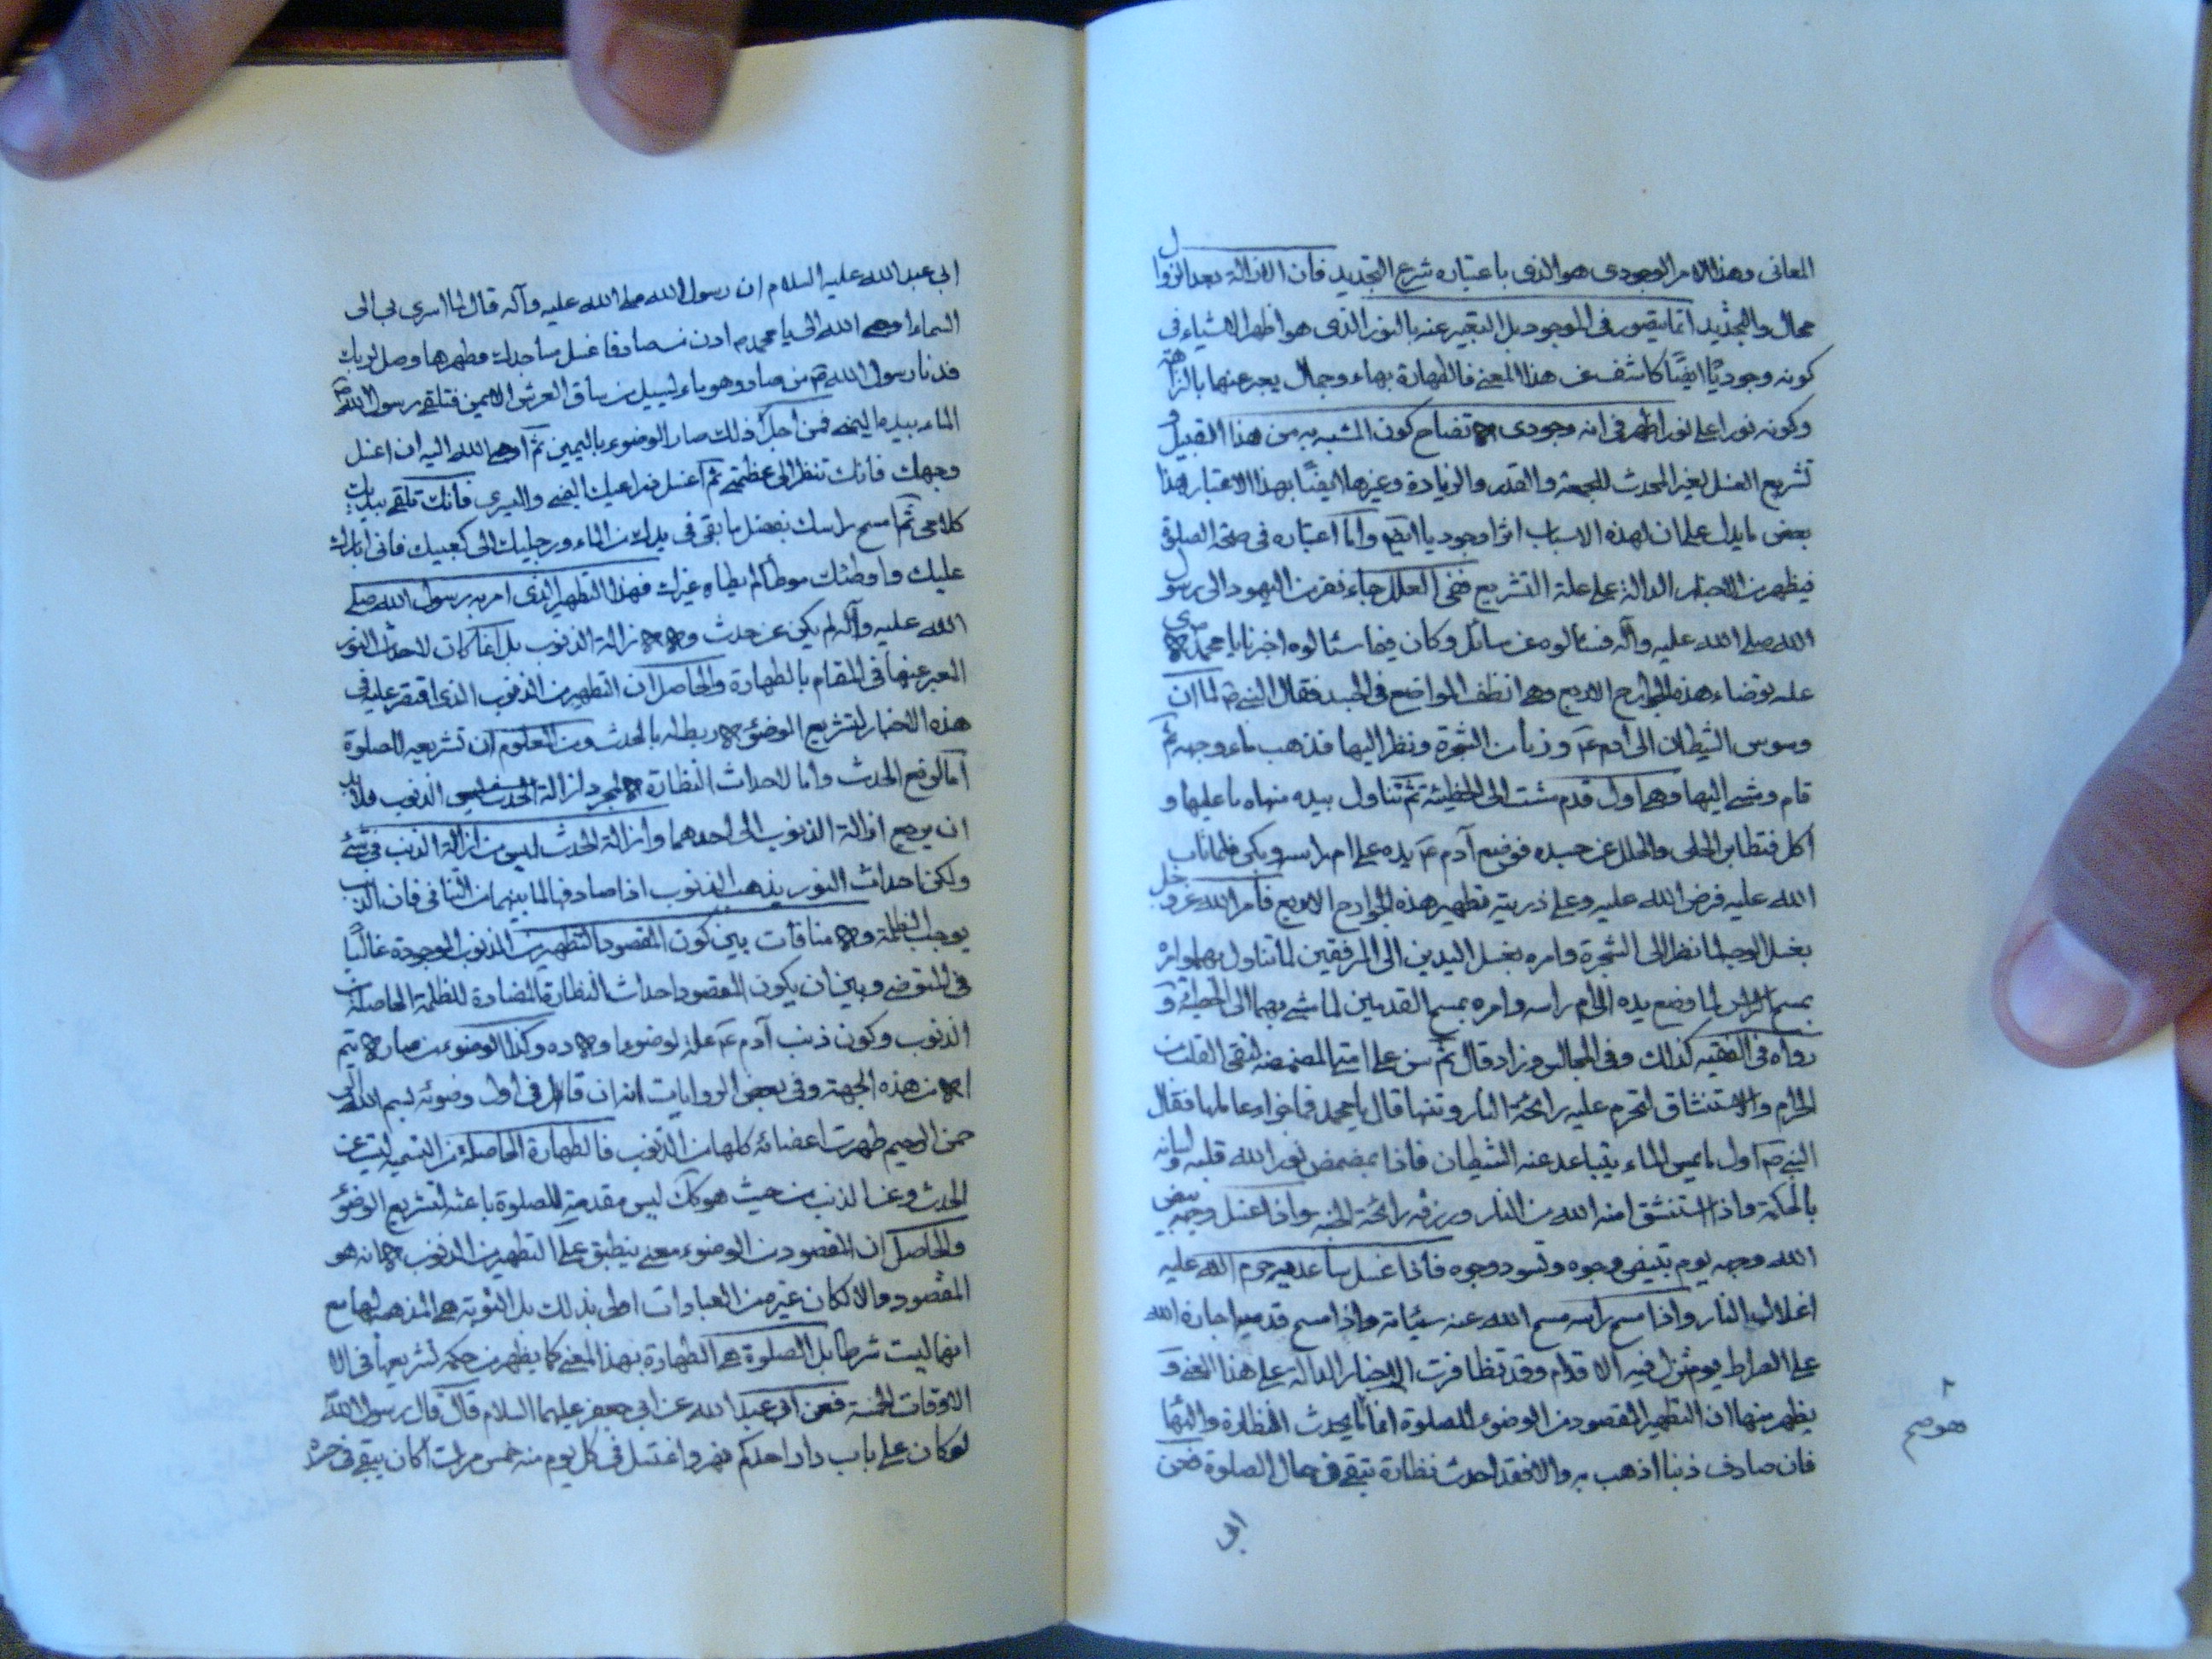 المعانى وهذا الامر الوجودى هو الذى باعتباره شرع التجديد فان الازالة بعد الزوال
محال والتجديد انما يتصور فى الموجود بل التعبير عنه بالنور الذى هو اظهر الاشياء فى
كونه وجوديًا ايضًا كاشف عن هذا المعنى فالطهارة بهاء وجمال يعبر عنهما بالنزاهة
وكونه نورا على نور اظهر فى انه وجودى تضاح كون المشبه به من هذا القبيل و
تشريع الغسل لغير المحدث للجمعة والقدر والزيادة وغيرها ايضًا بهذا الاعتبار هذا
بعض ما يدل على ان لهذه الاسباب اثرا وجوديا ايضا واما اعتباره فى صحة الصلوة
فيظهر من الاخبار الدالة على علة التشريع ففى العلل جاء نفر من اليهود الى رسول
الله صلى الله عليه وآله فسئالوه عن مسائل وكان فيما سئالوه اخبرنا يا محمد لاى
علة توضاء هذه الجوارح الاربع وهى انظف المواضع فى الجسد فقال النبى ص لما ان
وسوس الشيطان الى آدم ع ودنا من الشجرة ونظر اليها فذهب ماء وجهه ثم
قام ومشى اليها وهى اول قدم مشت الى الخطيئة ثم تناول بيده منها ما عليها و
اكل فتطاير الحلى والحلل عن جسده فوضع آدم ع يده على ام راسه وبكى فلما تاب
الله عليه فرض الله عليه وعلى ذريته تطهير هذه الجوارح الاربع فامر الله عز وجل
بغسل الوجه لما نظر الى الشجرة وامره بغسل اليدين الى المرفقين لما تناول بهما وامره
بمسح الراس لما وضع يده الى ام راسه وامره بمسح القدمين لما مشى بهما الى الخطيئة و
رواه فى الفقيه كذلك وفى المجالس وزاد قال ثم سن على امتى المضمضة لتنقى القلب من
الحرام والاستنشاق لتحرم عليه رائحة النار ونتنها قال يا محمد فما جزاء عاملها فقال
النبى ص اول ما يمس الماء يتباعد عنه الشيطان فاذا تمضمض نور الله قلبه ولسانه
بالحكمة واذا استنشق امنه الله من النار ورزقه رائحة الجنة واذا غسل وجهه بيض
الله وجهه يوم تبيض وجوه وتسود وجوه فاذا غسل ساعديه حرم الله عليه
اغلال النار واذا مسح راسه مسح الله عنه سيئاته واذا مسح قدميه اجازه الله
على الصراط يوم تزل فيه الاقدام وقد تظافرت الاخبار الدالة على هذا المعنى و
يظهر منها ان التطهير المقصود من الوضوء للصلوة انما يحدث النظارة والبهاء
فان صادف ذنبا اذهب به والا فقد احدث نظارة تبقى فى حال الصلوة فعن
ابى
ابى عبد الله عليه السلام ان رسول الله صلى الله عليه وآله قال لما اسرى بى الى
السماء اوحى الله الى يا محمد ص ادن من صاد فاغسل مساجدك وطهرها وصل لربك
فدنا رسول الله ص من صاد وهو ماء يسيل من ساق العرش الايمن فتلقى رسول الله ص
الماء بيده اليمنى فمن اجل ذلك صار الوضوء باليمين ثم اوحى الله اليه ان اغسل
وجهك فانك تنظر الى عظمتى ثم اغسل ذراعيك اليمنى واليسرى فانك تلقى بيديك
كلامى ثم امسح راسك بفضل ما بقى فى يدك من الماء ورجليك الى كعبيك فانى ابارك
عليك واوطئك موطأ لم يطاه غيرك فهذا التطهير الذى امر به رسول الله صلى
الله عليه وآله لم يكن عن حدث ازالة الذنوب بل انما كان لاحداث النور
المعبر عنها فى المقام بالطهارة والحاصل ان التطهير من الذنوب الذى اقتصر عليه فى
هذه الاخبار لتشريع الوضوء ربط له بالحدث ومن المعلوم ان تشريعه للصلوة
اما لرفع الحدث واما لاحداث النظارة لمجرد ازالة الذنوب فلابد
ان يرجع ازالة الذنوب الى احدهما وازالة الحدث ليس من ازالة الذنب فى شئ
ولكن احداث النور يذهب الذنوب اذا صادفها لما بينهما من التنافى فان الذنب
يوجب الظلمة منافات بين كون المقصود التطهير من الذنوب الموجودة غالبًا
فى المتوضى وبين ان يكون المقصود احداث النظارة المضادة للظلمة الحاصلة من
الذنوب وكون ذنب آدم ع علة لوضوء اولاده وكذا الوضوء من صاد يتم
من هذه الجهة وفى بعض الروايات انه ان قال فى اول وضوئه بسم الله الر
حمن الرحيم طهرت اعضائه كلها من الذنوب فالطهارة الحاصلة من التسمية ليست عن
الحدث وعن الذنب من حيث هو كك ليس مقدمة للصلوة باعثة لتشريع الوضوء
والحاصل ان المقصود من الوضوء معنى ينطبق على التطهير من الذنوب انه هو
المقصود والا لكان غيره من العبادات اولى بذلك بل التوبة هى المذهبة لها مع
انها ليست شرطا بل الصلوة هى الطهارة بهذا المعنى كما يظهر من حكمة تشريعها فى الا
الاوقات الخمسة فعن ابى عبد الله عن ابى جعفر عليهما السلام قال قال رسول الله ص
لو كان على باب دار احدكم نهر واغتسل فى كل يوم منه خمس مرات اكان يبقى فى جسده